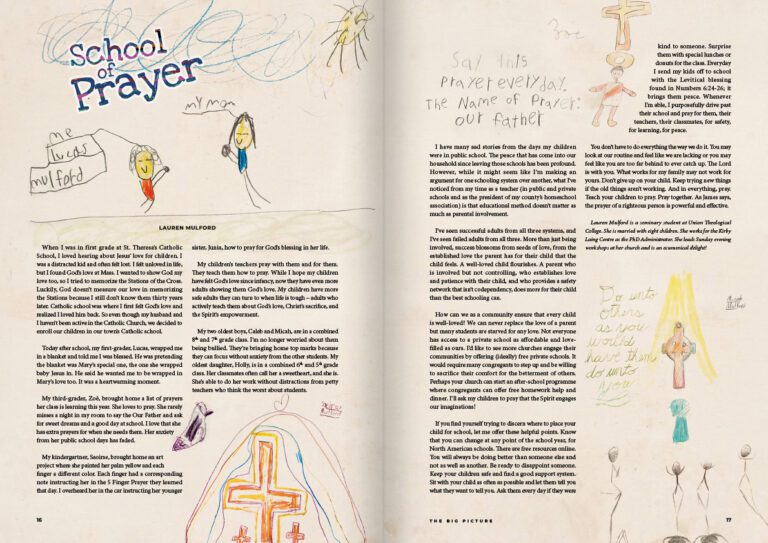 School
of
Prayer
my mom
me
lucas
mulford
LAUREN MULFORD
When I was in first grade at St. Theresa's Catholic
School, I loved hearing about Jesus' love for children. I
was a distracted kid and often felt lost. I felt unloved in life,
but I found God's love at Mass. I wanted to show God my
love too, so I tried to memorize the Stations of the Cross.
Luckily, God doesn't measure our love in memorizing
the Stations because I still don't know them thirty years
later. Catholic school was where I first felt God's love and
realized I loved him back. So even though my husband and
I haven't been active in the Catholic Church, we decided to
enroll our children in our town's Catholic school.
Today after school, my first-grader, Lucas, wrapped me
in a blanket and told me I was blessed. He was pretending
the blanket was Mary's special one, the one she wrapped
baby Jesus in. He said he wanted me to be wrapped in
Mary's love too. It was a heartwarming moment.
My third-grader, Zoë, brought home a list of prayers
her class is learning this year. She loves to pray. She rarely
misses a night in my room to say the Our Father and ask
for sweet dreams and a good day at school. I love that she
has extra prayers for when she needs them. Her anxiety
from her public school days has faded.
My kindergartner, Saoirse, brought home an art
project where she painted her palm yellow and each
finger a different color. Each finger had a corresponding
note instructing her in the 5 Finger Prayer they learned
that day. I overheard her in the car instructing her younger
sister, Junia, how to pray for God's blessing in her life.
My children's teachers pray with them and for them.
They teach them how to pray. While I hope my children
have felt God's love since infancy, now they have even more
adults showing them God's love. My children have more
safe adults they can turn to when life is tough – adults who
actively teach them about God's love, Christ's sacrifice, and
the Spirit's empowerment.
My two oldest boys, Caleb and Micah, are in a combined
8th and 7th grade class. I'm no longer worried about them
being bullied. They're bringing home top marks because
they can focus without anxiety from the other students. My
oldest daughter, Holly, is in a combined 6th and 5th grade
class. Her classmates often call her a sweetheart, and she is.
She's able to do her work without distractions from petty
teachers who think the worst about students.
16
Zoe
Say this
prayer everyday.
The Name of Prayer:
our father
I have many sad stories from the days my children
were in public school. The peace that has come into our
household since leaving those schools has been profound.
However, while it might seem like I'm making an
argument for one schooling system over another, what I've
noticed from my time as a teacher (in public and private
schools and as the president of my county's homeschool
association) is that educational method doesn't matter as
much as parental involvement.
I've seen successful adults from all three systems, and
I've seen failed adults from all three. More than just being
involved, success blossoms from seeds of love, from the
established love the parent has for their child that the
child feels. A well-loved child flourishes. A parent who
is involved but not controlling, who establishes love
and patience with their child, and who provides a safety
network that isn't codependency, does more for their child
than the best schooling can.
How can we as a community ensure that every child
is well-loved? We can never replace the love of a parent
but many students are starved for any love. Not everyone
has access to a private school as affordable and love-
filled as ours. I'd like to see more churches engage their
communities by offering (ideally) free private schools. It
would require many congregants to step up and be willing
to sacrifice their comfort for the betterment of others.
Perhaps your church can start an after-school programme
where congregants can offer free homework help and
dinner. I'll ask my children to pray that the Spirit engages
our imaginations!
If you find yourself trying to discern where to place your
child for school, let me offer these helpful pointers. Know
that you can change at any point of the school year, for
North American schools. There are free resources online.
You will always be doing better than someone else and
not as well as another. Be ready to disappoint someone.
Keep your children safe and find a good support system.
Sit with your child as often as possible and let them tell you
what they want to tell you. Ask them every day if they were
kind to someone. Surprise
them with special lunches or
donuts for the class. Everyday
I send my kids off to school
with the Levitical blessing
found in Numbers 6:24-26; it
brings them peace. Whenever
I'm able, I purposefully drive past
their school and pray for them, their
teachers, their classmates, for safety,
for learning, for peace.
You don't have to do everything the way we do it. You may
look at our routine and feel like we are lacking or you may
feel like you are too far behind to ever catch up. The Lord
is with you. What works for my family may not work for
yours. Don't give up on your child. Keep trying new things
if the old things aren't working. And in everything, pray.
Teach your children to pray. Pray together. As James says,
the prayer of a righteous person is powerful and effective.
Lauren Mulford is a seminary student at Union Theological
College. She is married with eight children. She works for the Kirby
Laing Centre as the PhD Administrator. She leads Sunday evening
workshops at her church and is an ecumenical delight!
Do unto
others
as you
would
have them
do unto
you
THE BIG PICTURE
17